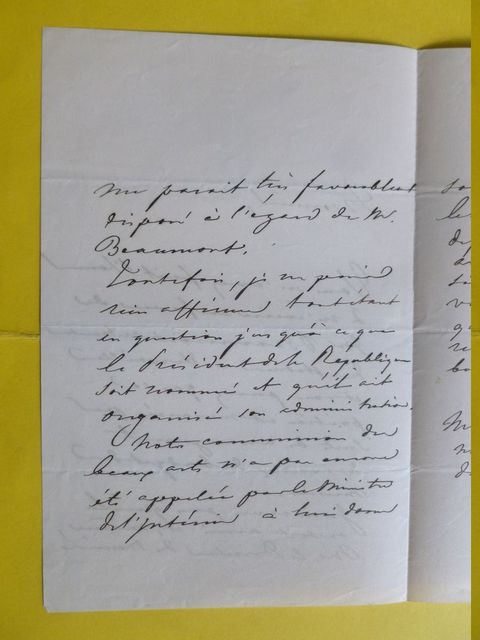 me parait très favorablement
disposé à l'égard de M.
Beaumont.
Toutefois, je ne puis
rien affirmer tout étant
en question jusqu'à ce que
le Président de la République
soit nommé et qu'il ait
organisé son administration.
Notre commission des
beaux arts n'a pas encore
été appelée par le Ministre
de l'Intérieur à lui donn